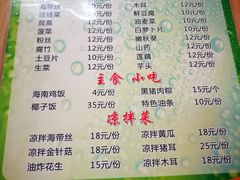 娃娃菜 10元/份
茼蒿 12元/份
菠菜 12元/份
粉丝 12元/份
腐竹 12元/份
土豆片 10元/份
生菜 12元/份
木耳 12元/份
鲜豆腐 10元/份
油麦菜 12元/份
白萝卜片 10元/份
嫩秋葵 12元/份
山药 12元/份
莲藕 12元/份
芋头 12元/份
主食 小吃
海南鸡饭 4元/份
椰子饭 35元/份
黑猪肉粽 15元/个
特色油条 10元/份
凉拌菜
凉拌海带丝 18元/份
凉拌金针菇 18元/份
油炸花生 15元/份
凉拌黄瓜 18元/份
凉拌猪耳 25元/份
凉拌木耳 18元/份